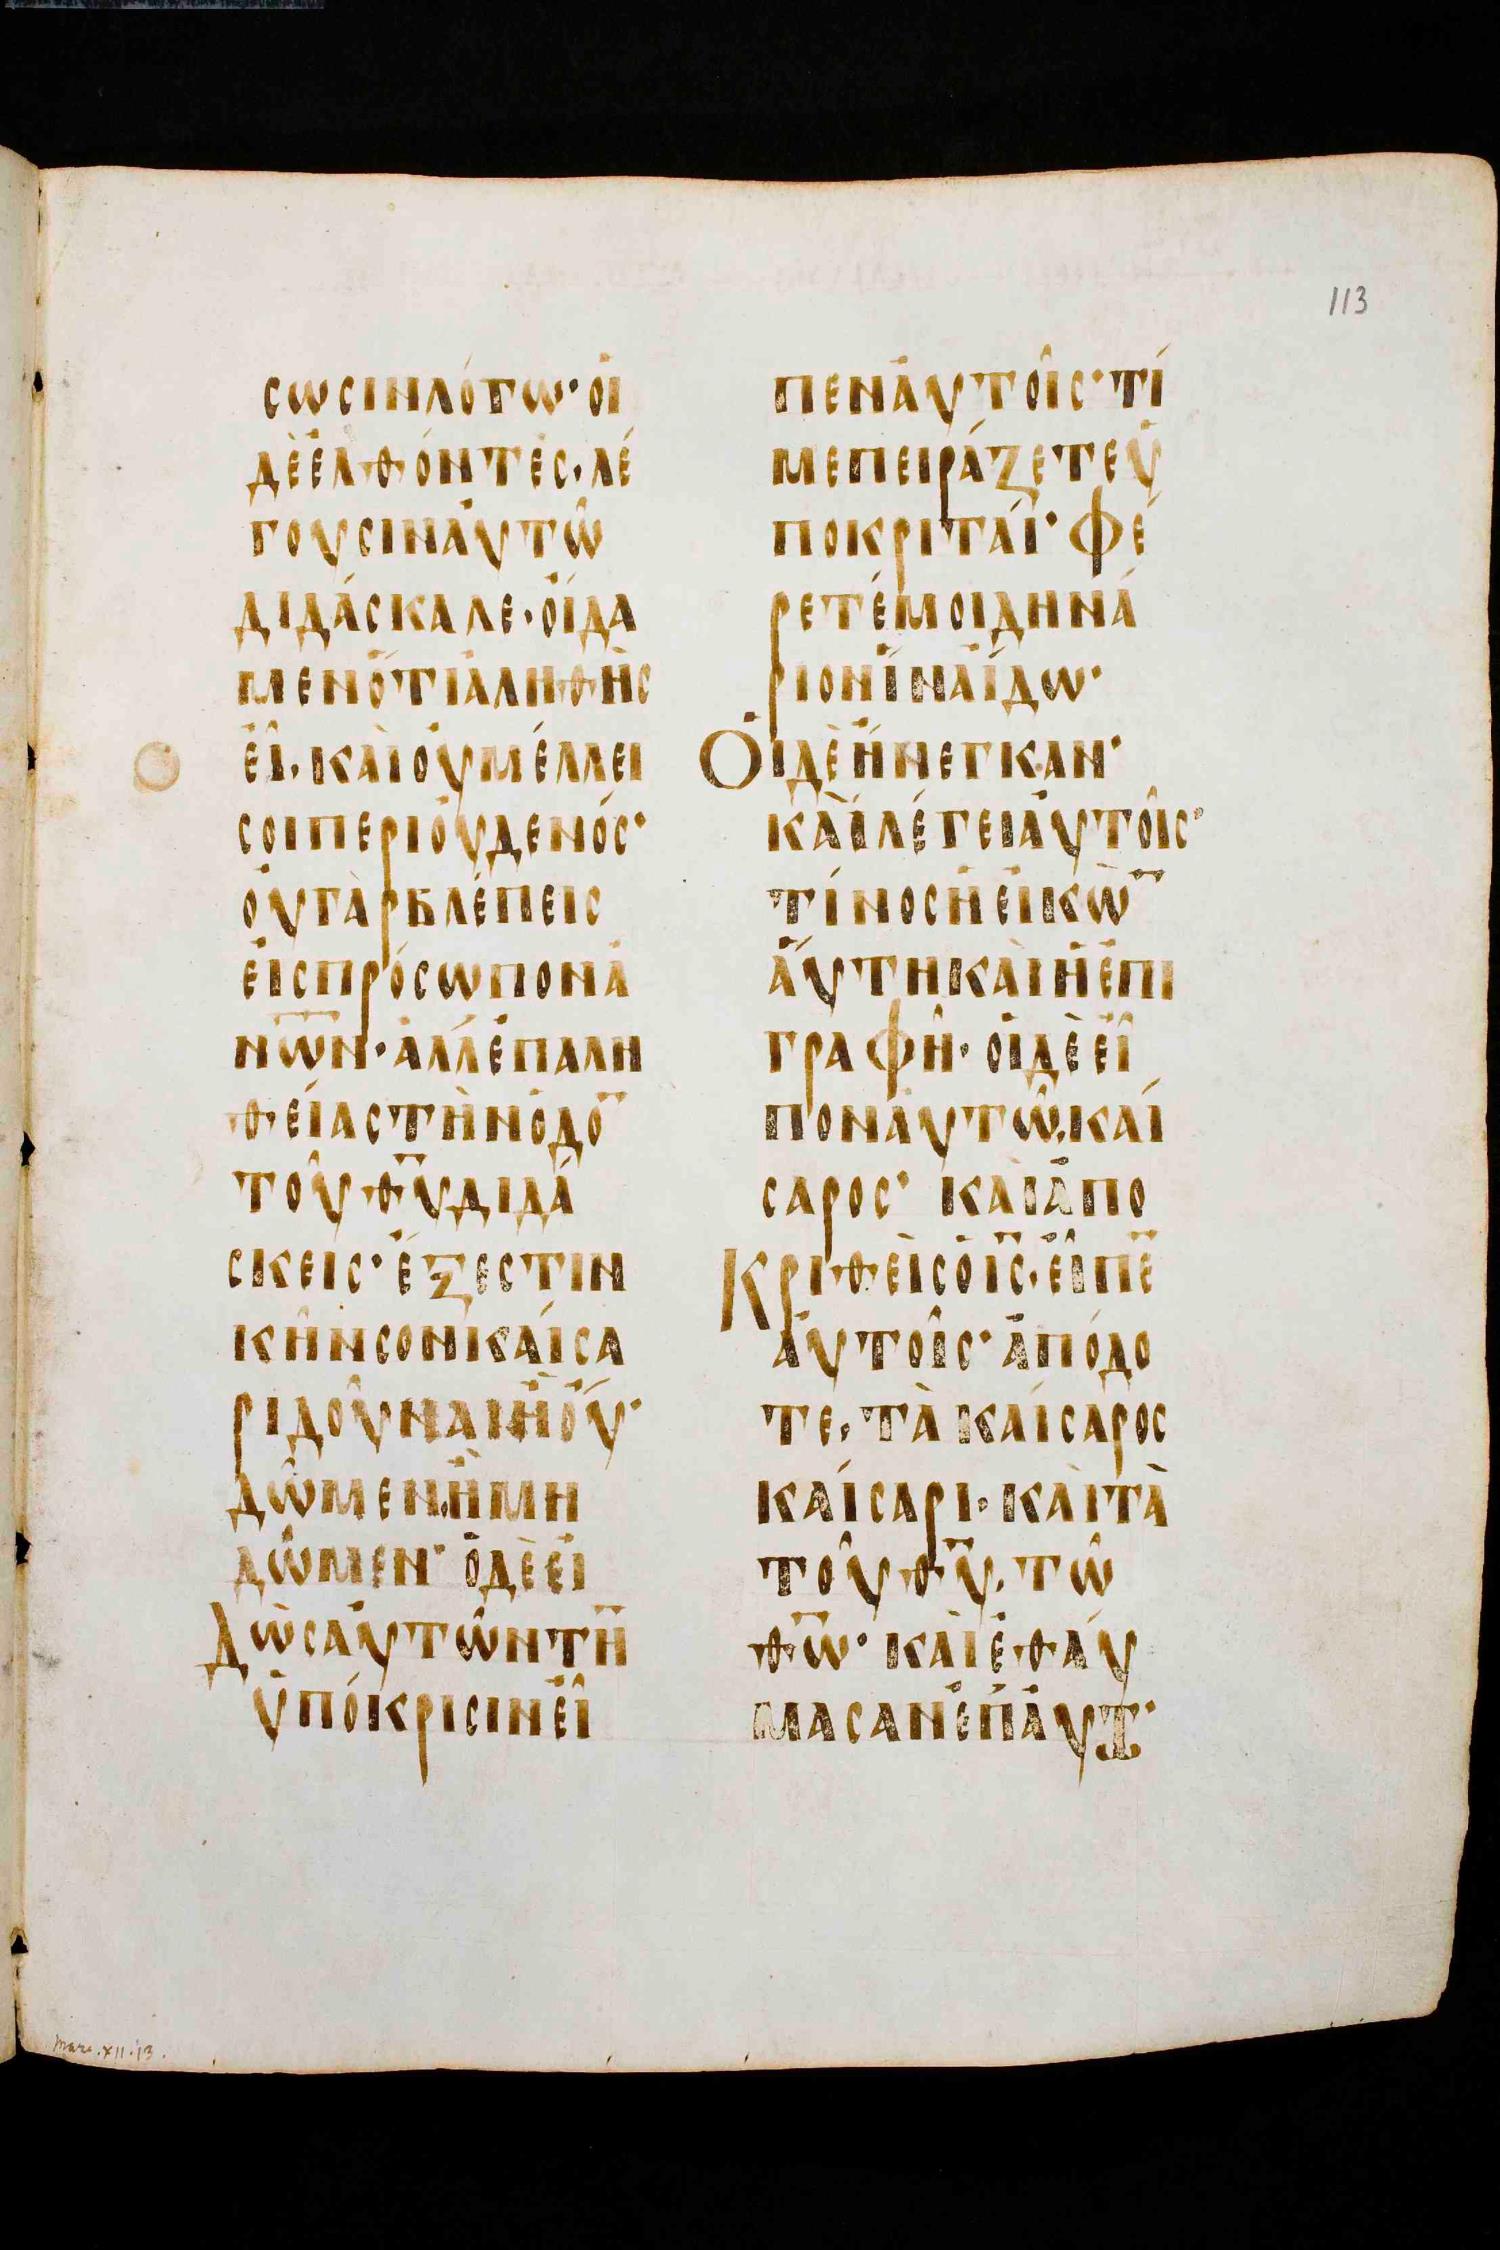 113
σωσινλόγω· οἱ
δὲἐλθόντες· λέ
γουσιναὐτῶ
διδάσκαλε· οἴδα
μενὅτιἀληθὴς
εἶ· καὶοὐμέλλει
σοιπεριοὐδενός·
οὐγὰρβλέπεις
εἰςπρόσωπονἀ
ν̅ω̅ν̅· ἀλλἐπαλη
θείαςτὴνὁδο̅
τοῦθ̅υ̅διδά
σκεις· ἔξεστιν
κῆνσονκαίσα
ριδοῦναιἢοὔ·
δῶμενἢμη
δῶμεν· ὁδὲεἰ
Δὼςαὐτῶντη̅
ὑπόκρισινεἶ
πεναὐτοῖς· τί
μεπειράζετεὑ
ποκριταί· φέ
ρετέμοιδηνά
ριονἵναἴδω·
Οἱδὲἤνεγκαν·
καὶλέγειαὐτοῖς·
τίνοςἡεἰκὼ̅
αὕτηκαὶἡἐπι
γραφῆ· οἱδὲεἶ
ποναὐτῶ, καί
σαρος· καὶἀπο
Κριθεὶςὁι̅ς̅· εἶπε̅
αὐτοῖς· ἀπόδο
τε, τὰκαίσαρος
καίσαρι· καὶτὰ
τοῦθ̅υ̅, τῶ
θ̅ω̅· καὶἐθαύ
μασανἐπαὐτῶ·
Marc. XII. 13.